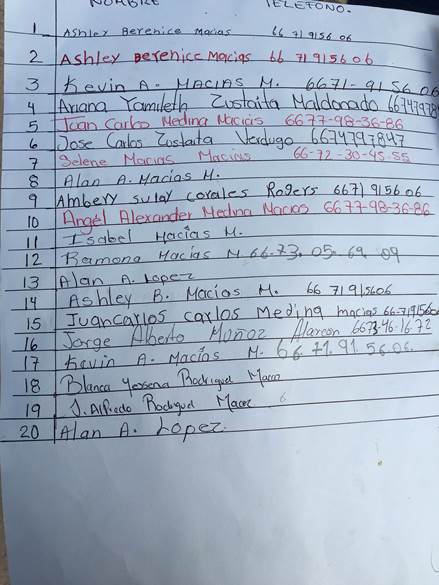 NOMBRE TELEFONO.
1 Ashley Berenice Macias 66 71 9156 06
2 Ashley Berenice Macias 66 71 91 56 06
3 Kevin A. MACIAS M. 6671-91 56 06
4 Ariana Yamileth Zustaita Maldonado 66747978
5 Joan Carlo Medina Macias 6677-98-36-86
6 Jose Carlos Zustaita Verdugo 6674797847
7 Selene Macias Macias 66-72-30-45-55
8 Alan A. Macias M.
9 Ambery sulay corales Rogers 6671 915606
10 Angel Alexander Medina Macias 6677-98-36-86
11 Isabel Macías M.
12 Ramona Macias M 66.73.05.69 09
13 Alan A. Lopez
14 Ashley B. Macias M. 66 71 915606
15 Juancarlos carlos Medina macias 66-71915606
16 Jorge Alberto Muñoz Alarcon 6673-46-1672
17 Kevin A. Macías M. 66 71.91 56 06.
18 Blanca Yessena
19 J. Alfredo
20 Alan A. Lopez.